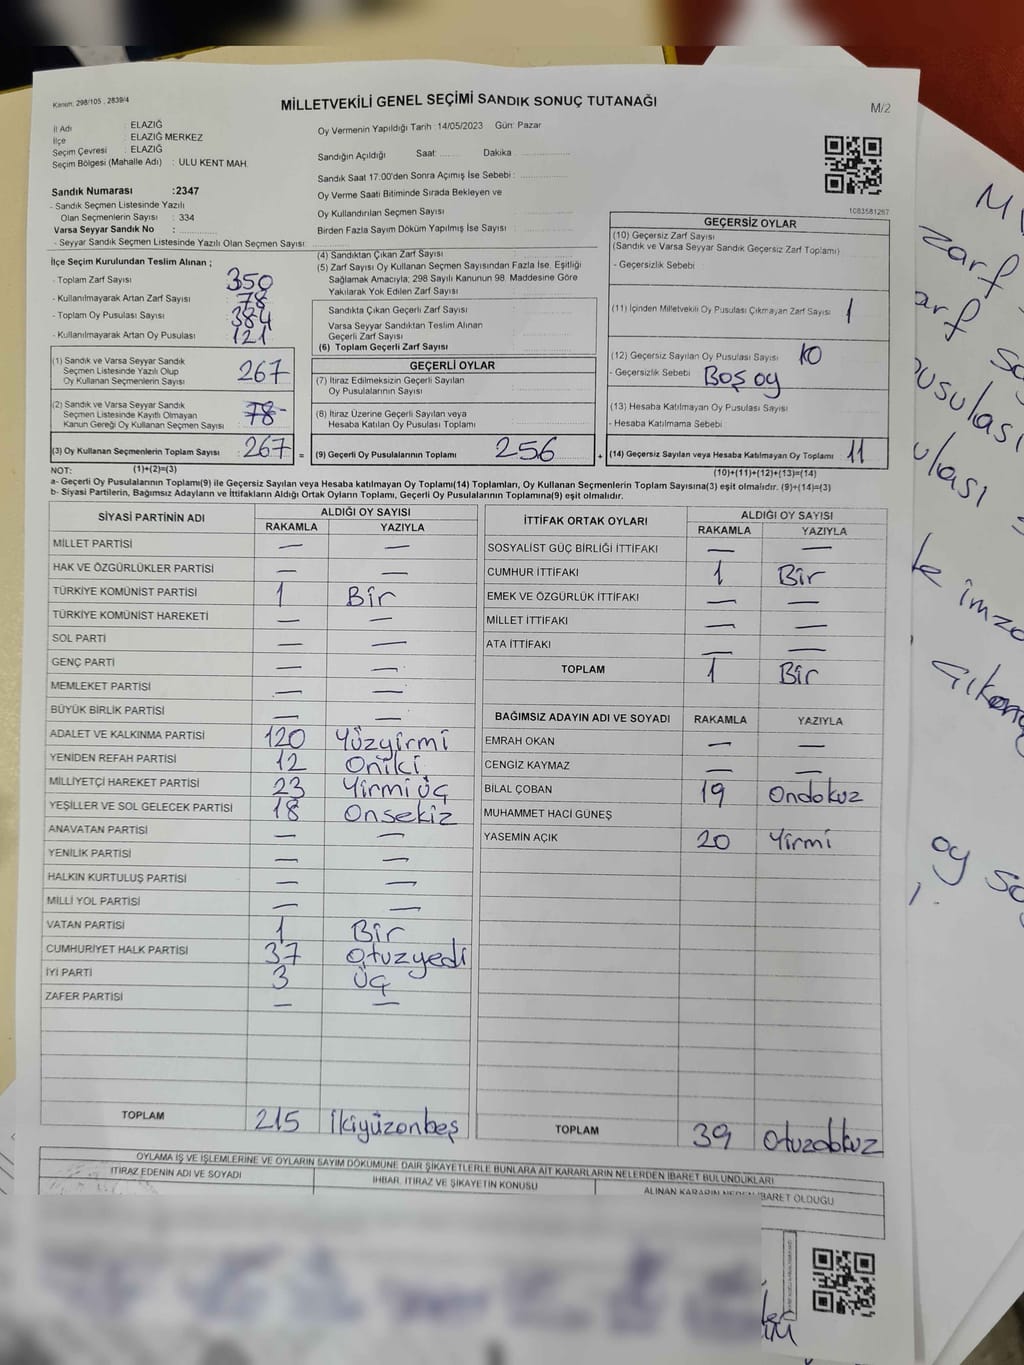 Kanun: 298/105 , 2839/4
MİLLETVEKİLİ GENEL SEÇİMİ SANDIK SONUÇ TUTANAĞI
M/2
İl Adı : ELAZIĞ
İlçe : ELAZIĞ MERKEZ
Seçim Çevresi : ELAZIĞ
Seçim Bölgesi (Mahalle Adı) : ULU KENT MAH.
Sandık Numarası :2347
- Sandık Seçmen Listesinde Yazılı
Olan Seçmenlerin Sayısı : 334
Varsa Seyyar Sandık No :
- Seyyar Sandık Seçmen Listesinde Yazılı Olan Seçmen Sayısı :
Oy Vermenin Yapıldığı Tarih :14/05/2023 Gün: Pazar
Sandığın Açıldığı Saat: Dakika
Sandık Saat 17:00'den Sonra Açımış İse Sebebi :
Oy Verme Saati Bitiminde Sırada Bekleyen ve
Oy Kullandırılan Seçmen Sayısı
Birden Fazla Sayım Döküm Yapılmış İse Sayısı :
1083581287
İlçe Seçim Kurulundan Teslim Alınan ;
- Toplam Zarf Sayısı : 350
- Kullanılmayarak Artan Zarf Sayısı : 78
- Toplam Oy Pusulası Sayısı : 384
- Kullanılmayarak Artan Oy Pusulası : 121
(1) Sandık ve Varsa Seyyar Sandık
Seçmen Listesinde Yazılı Olup
Oy Kullanan Seçmenlerin Sayısı : 267
(2) Sandık ve Varsa Seyyar Sandık
Seçmen Listesinde Kayıtlı Olmayan
Kanun Gereği Oy Kullanan Seçmen Sayısı : 78
(3) Oy Kullanan Seçmenlerin Toplam Sayısı : 267 =
(4) Sandıktan Çıkan Zarf Sayısı
(5) Zarf Sayısı Oy Kullanan Seçmen Sayısından Fazla İse, Eşitliği
Sağlamak Amacıyla; 298 Sayılı Kanunun 98. Maddesine Göre
Yakılarak Yok Edilen Zarf Sayısı
Sandıkta Çıkan Geçerli Zarf Sayısı
Varsa Seyyar Sandıktan Teslim Alınan
Geçerli Zarf Sayısı
(6) Toplam Geçerli Zarf Sayısı
GEÇERLİ OYLAR
(7) İtiraz Edilmeksizin Geçerli Sayılan
Oy Pusulalarının Sayısı
(8) İtiraz Üzerine Geçerli Sayılan veya
Hesaba Katılan Oy Pusulası Toplamı
(9) Geçerli Oy Pusulalarının Toplamı : 256 +
GEÇERSİZ OYLAR
(10) Geçersiz Zarf Sayısı
(Sandık ve Varsa Seyyar Sandık Geçersiz Zarf Toplamı)
- Geçersizlik Sebebi
(11) İçinden Milletvekili Oy Pusulası Çıkmayan Zarf Sayısı 1
(12) Geçersiz Sayılan Oy Pusulası Sayısı 10
- Geçersizlik Sebebi Boş oy
(13) Hesaba Katılmayan Oy Pusulası Sayısı
- Hesaba Katılmama Sebebi
(14) Geçersiz Sayılan veya Hesaba Katılmayan Oy Toplamı 11
NOT: (1)+(2)=(3) (10)+(11)+(12)+(13)=(14)
a- Geçerli Oy Pusulalarının Toplamı(9) ile Geçersiz Sayılan veya Hesaba katılmayan Oy Toplamı(14) Toplamları, Oy Kullanan Seçmenlerin Toplam Sayısına(3) eşit olmalıdır. (9)+(14)=(3)
b- Siyasi Partilerin, Bağımsız Adayların ve İttifakların Aldığı Ortak Oyların Toplamı, Geçerli Oy Pusulalarının Toplamına(9) eşit olmalıdır.
SİYASİ PARTİNİN ADI ALDIĞI OY SAYISI
RAKAMLA YAZIYLA
MİLLET PARTİSİ — —
HAK VE ÖZGÜRLÜKLER PARTİSİ — —
TÜRKİYE KOMÜNİST PARTİSİ 1 Bir
TÜRKİYE KOMÜNİST HAREKETİ — —
SOL PARTİ — —
GENÇ PARTİ — —
MEMLEKET PARTİSİ — —
BÜYÜK BİRLİK PARTİSİ — —
ADALET VE KALKINMA PARTİSİ 120 Yüzyirmi
YENİDEN REFAH PARTİSİ 12 Oniki
MİLLİYETÇİ HAREKET PARTİSİ 23 Yirmi üç
YEŞİLLER VE SOL GELECEK PARTİSİ 18 Onsekiz
ANAVATAN PARTİSİ — —
YENİLİK PARTİSİ — —
HALKIN KURTULUŞ PARTİSİ — —
MİLLİ YOL PARTİSİ — —
VATAN PARTİSİ 1 Bir
CUMHURİYET HALK PARTİSİ 37 Otuzyedi
İYİ PARTİ 3 Üç
ZAFER PARTİSİ — —
TOPLAM 215 İkiyüzonbeş
İTTİFAK ORTAK OYLARI ALDIĞI OY SAYISI
RAKAMLA YAZIYLA
SOSYALİST GÜÇ BİRLİĞİ İTTİFAKI — —
CUMHUR İTTİFAKI 1 Bir
EMEK VE ÖZGÜRLÜK İTTİFAKI — —
MİLLET İTTİFAKI — —
ATA İTTİFAKI — —
TOPLAM 1 Bir
BAĞIMSIZ ADAYIN ADI VE SOYADI RAKAMLA YAZIYLA
EMRAH OKAN — —
CENGİZ KAYMAZ — —
BİLAL ÇOBAN 19 Ondokuz
MUHAMMET HACİ GÜNEŞ
YASEMİN AÇIK 20 Yirmi
TOPLAM 39 Otuzdokuz
OYLAMA İŞ VE İŞLEMLERİNE VE OYLARIN SAYIM DÖKÜMÜNE DAİR ŞİKAYETLERLE BUNLARA AİT KARARLARIN NELERDEN İBARET BULUNDUKLARI
İTİRAZ EDENİN ADI VE SOYADI İHBAR, İTİRAZ VE ŞİKAYETİN KONUSU ALINAN KARARIN NEDEN İBARET OLDUĞU
zarf
arf
pusulası
ulası
imza
oy